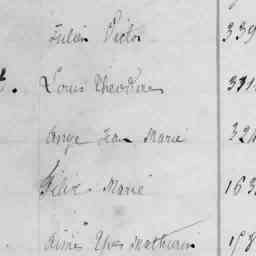 Julien Victor 339
Louis Théodore 331
Ange Jean Marie 324
Félix Marie 163
Aimé Yves Mathurin